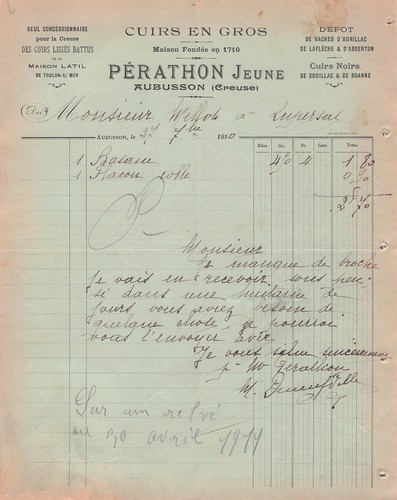 6
SEUL CONCESSIONNAIRE
pour la Creuse
DES CUIRS LISSÉS BATTUS
DE LA
MAISON LATIL
DE TOULON-S/ MER
CUIRS EN GROS
Maison Fondée en 1710
PÉRATHON JEUNE
AUBUSSON (Creuse)
DÉPOT
DE VACHES D'AURILLAC
DE LAFLÈCHE & D'ARGENTON
Cuirs Noirs
DE SOUILLAC & DE ROANNE
Doit
Monsieur à Lupersac
AUBUSSON, le 27 7bre 1910
Kilos Gr. Fr. Cent. TOTAL
1 Basane 4 50 4 1 80
1 Flacon colle 0 90
2 F 70
Monsieur
Je manque de broche
Je vais en recevoir sous peu
si dans une huitaine de
jours vous aviez besoin de
quelque chose, je pourrai
vous l'envoyer avec
Je vous salue sincèrement
pr Mr Pérathon
M.
Sur am relvé
au 30 avril 1911